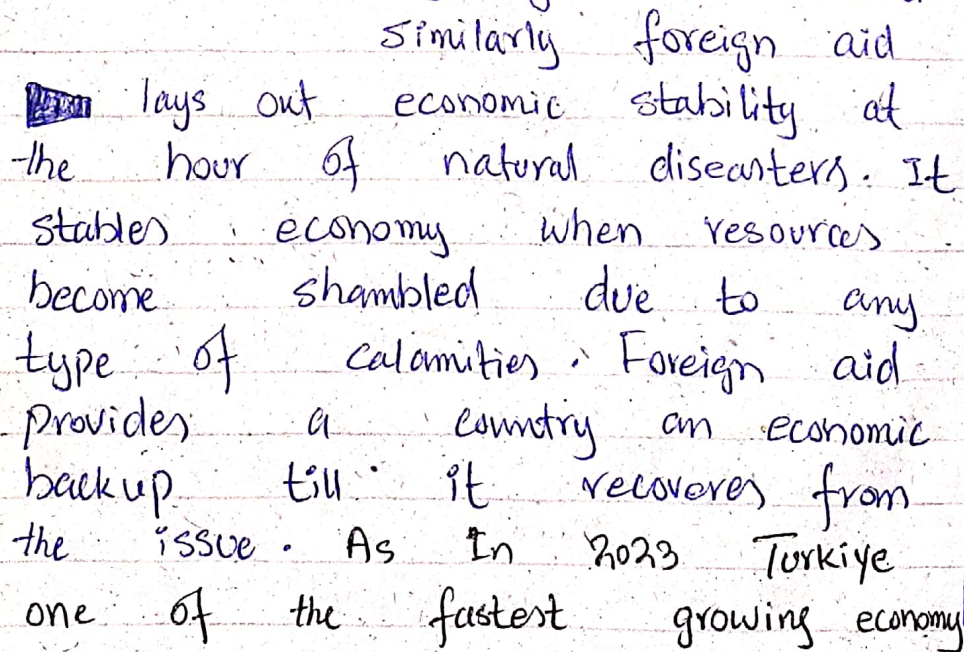 Similarly foreign aid
lays out economic stability at
the hour of natural diseasters. It
stables economy when resources
become shambled due to any
type of calamities. Foreign aid
provides a country an economic
backup till it recoveres from
the issue. As In 2023 Turkiye
one of the fastest growing economy